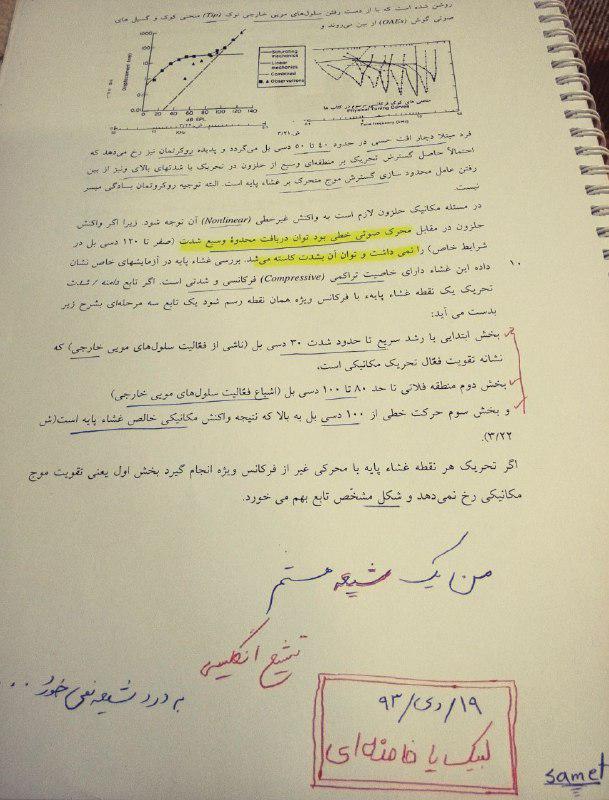 روشن شده است که با از دست رفتن سلول‌های مویی خارجی نوک (Tip) منحنی کوک و گسیل های
صوتی گوش (OAEs) از بین می‌روند و
1000
100
10
1
0.1
Displacement (nm)
0 20 40 60 80 100 120 140
dB SPL
Saturating mechanics
Linear mechanics
Combined
Observations
Physical Tuning Curves
ش ۳/۲۱
فرد مبتلا دچار افت حسی در حدود ۴۰ تا ۵۰ دسی بل می‌گردد و پدیده روکرتمان نیز رخ می‌دهد که
احتمالاً حاصل گسترش تحریک بر منطقه‌ای وسیع از حلزون در تحریک با شدتهای بالای ونیز از بین
رفتن عامل محدود سازی گسترش موج متحرک بر غشاء پایه است. البته توجیه روکروتمان بسادگی میسر
نیست.
در مسئله مکانیک حلزون لازم است به واکنش غیرخطی (Nonlinear) آن توجه شود. زیرا اگر واکنش
حلزون در مقابل محرک صوتی خطی بود توان دریافت محدودهٔ وسیع شدت (صفر تا ۱۲۰ دسی بل در
شرایط خاص) را نمی داشت و توان آن بشدت کاسته می‌شد. بررسی غشاء پایه در آزمایشهای خاص نشان
داده این غشاء دارای خاصیت تراکمی (Compressive) فرکانسی و شدتی است. اگر تابع دامنه / شدت
تحریک یک نقطه غشاء پایهء با فرکانس ویژه همان نقطه رسم شود یک تابع سه مرحله‌ای بشرح زیر
بدست می آید:
بخش ابتدایی با رشد سریع تا حدود شدت ۳۰ دسی بل (ناشی از فعّالیت سلول‌های مویی خارجی) که
نشانه تقویت فعّال تحریک مکانیکی است،
بخش دوم منطقه فلاتی تا حد ۸۰ تا ۱۰۰ دسی بل (اشباع فعّالیت سلول‌های مویی خارجی)
و بخش سوم حرکت خطی از ۱۰۰ دسی بل به بالا که نتیجه واکنش مکانیکی خالص غشاء پایه است(ش
۳/۲۲).
اگر تحریک هر نقطه غشاء پایه با محرکی غیر از فرکانس ویژه انجام گیرد بخش اول یعنی تقویت موج
مکانیکی رخ نمی‌دهد و شکل مشخّص تابع بهم می خورد.
من یک شیعه هستم
تشیع انگلیسی
به درد شیعه نمی خورد ...
۱۹/دی/۹۳
لبیک یا خامنه‌ای
samet